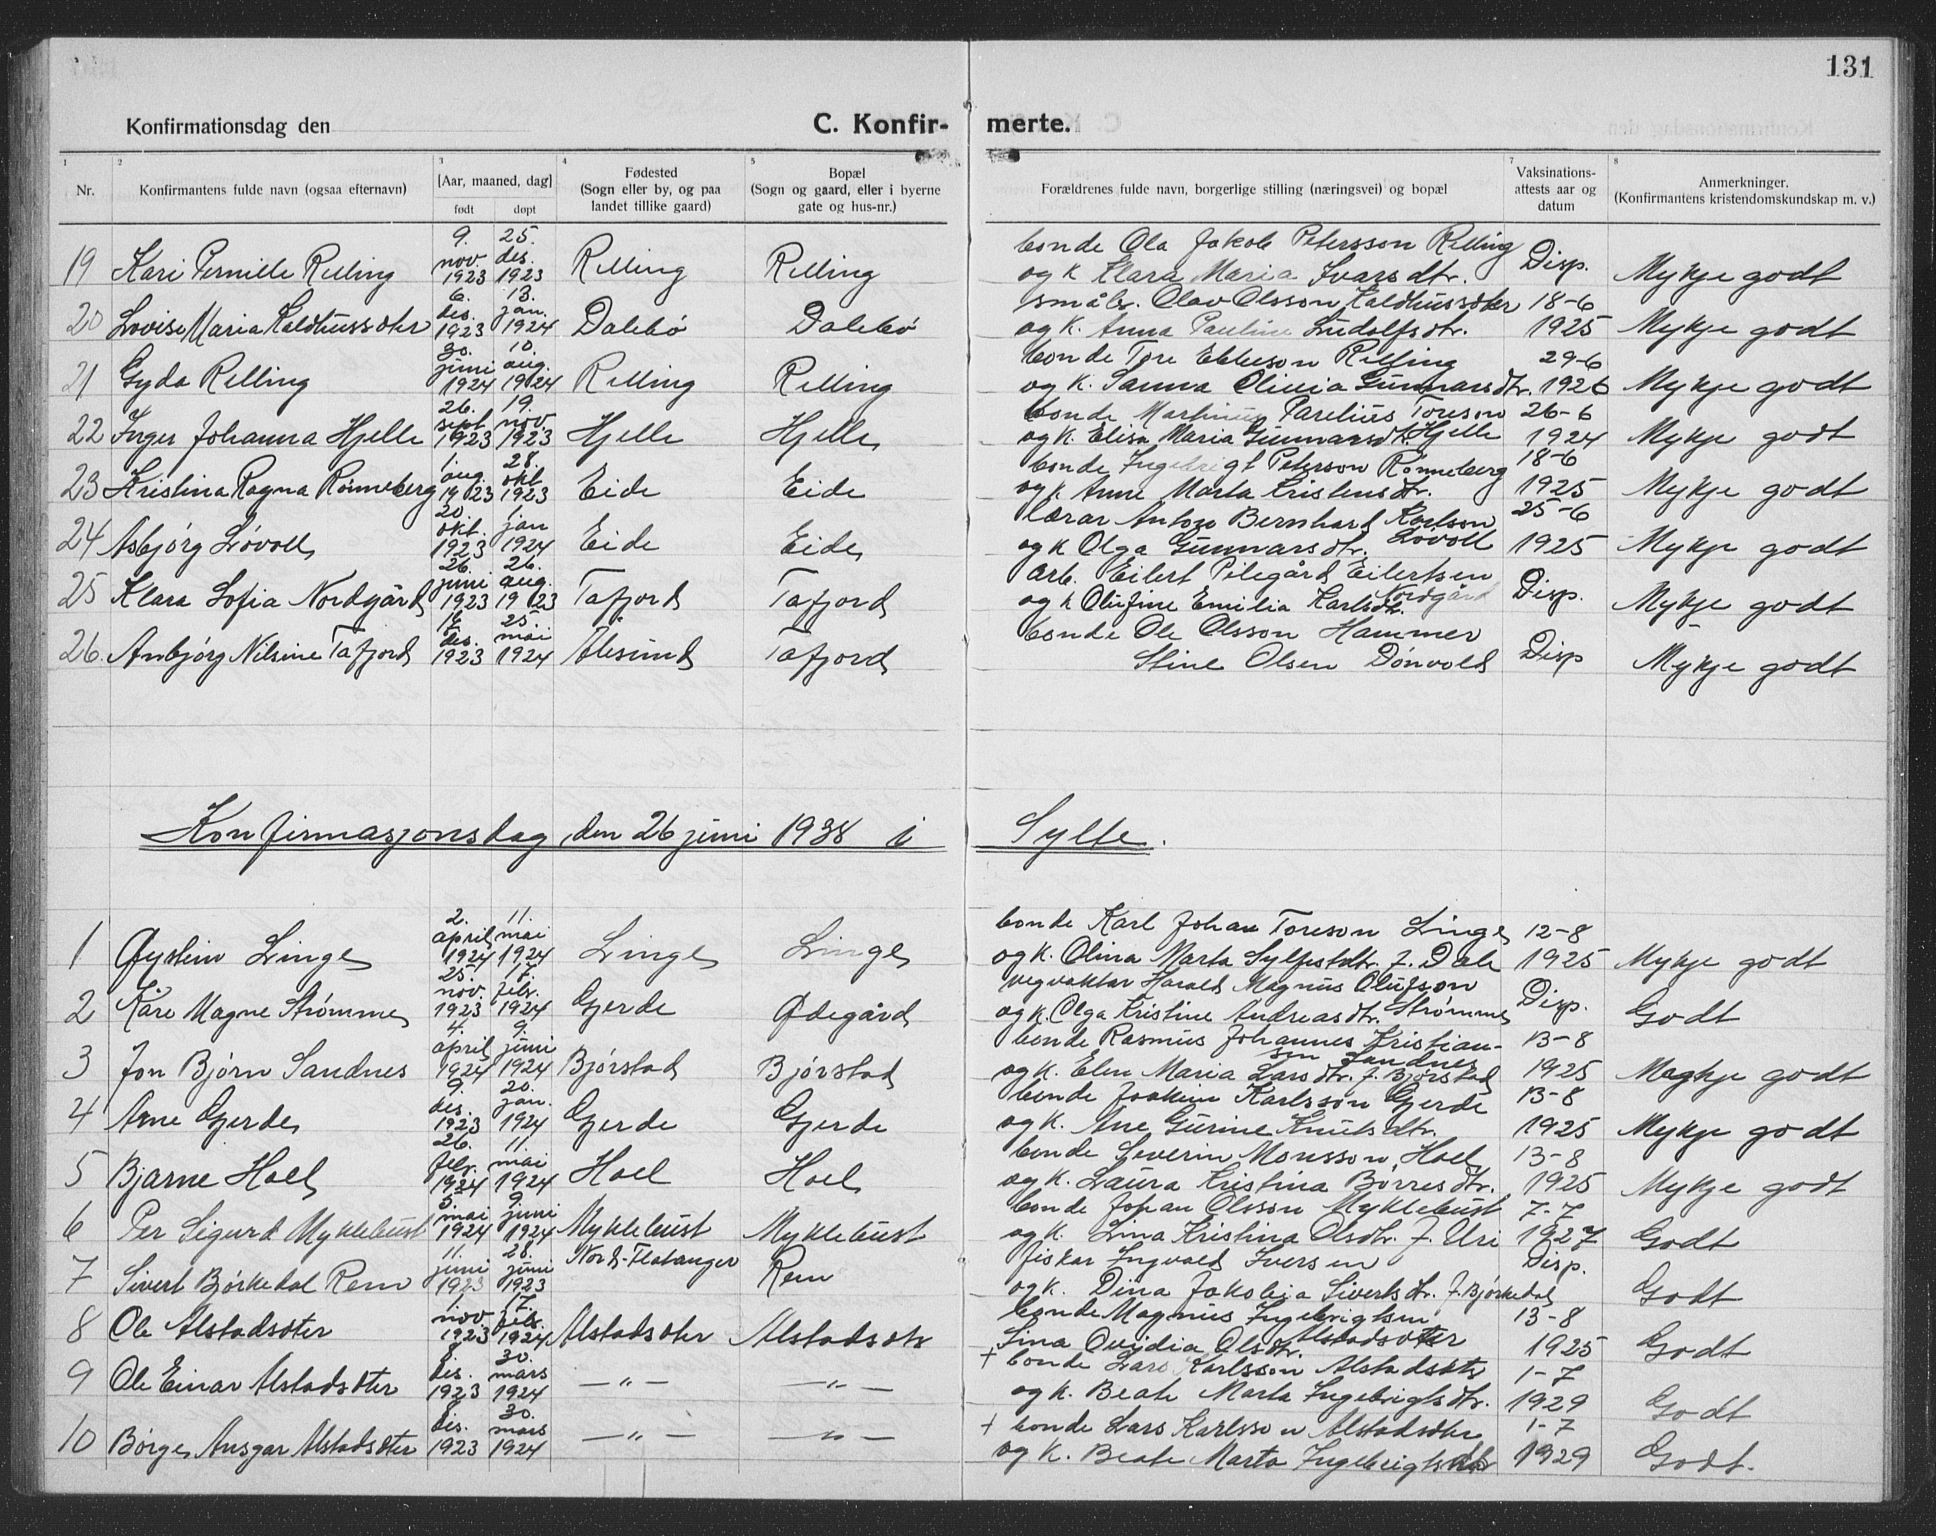 131
Konfirmationsdag den C. Konfir- merte.
1 2 3 4 5 7 8
Nr. Konfirmantens fulde navn (ogsaa efternavn) [Aar, maaned, dag] født døpt Fødested (Sogn eller by, og paa landet tillike gaard) Bopæl (Sogn og gaard, eller i byerne gate og hus-nr.) Forældrenes fulde navn, borgerlige stilling (næringsvei) og bopæl Vaksinations- attests aar og datum Anmerkninger. (Konfirmantens kristendomskundskap m. v.)
19 Kari Pernille Relling 9. nov. 1923 25. des. 1923 Relling Relling bonde Ola Jakob Petersson Relling og k Klara Maria Ivarsdtr. Disp. Mykje godt
20 Lovise Maria Kaldhussæter 6. des. 1923 13. jan. 1924 Dalebø Dalebø småbr. Olav Olsson Kaldhussæter og k. Anna Pauline Ludolfsdtr. 18-6 1925 Mykje godt
21 Gyda Relling 30. juni 1924 10. aug. 1924 Relling Relling bonde Tore Ebbeson Relling og k. Sanna Olivia Gunnarsdtr. 29-6 1926 Mykje godt
22 Inger Johanna Hjelle 26. sept 1923 19. nov. 1923 Hjelle Hjelle bonde Martinus Parelius Toreson Hjelle og k. Elisa Maria Gunnarsdtr. 26-6 1924 Mykje godt
23 Kristina Ragna Rønneberg 1. aug. 1923 28. okt. 1923 Eide Eide bonde Ingebrigt Peterson Rønneberg og k. Anne Marta Kristensdtr. 18-6 1925 Mykje godt
24 Asbjørg Løvoll 20. okt. 1923 1. jan 1924 Eide Eide lærar Anton Bernhard Karlson Løvoll og k Olga Gunnarsdtr. 25-6 1925 Mykje godt
25 Klara Sofia Nordgård 26. juni 1923 26. aug. 1923 Tafjord Tafjord arb. Eilert Pilegård Eilertsen Nordgård og k Olufine Emilia Karlsdtr. Disp. Mykje godt
26. Anbjørg Nilsine Tafjord des. 1923 25. mai 1924 Ålesund Tafjord bonde Ole Olsson Hammer Stine Olsen Dønvold Disp Mykje godt
Konfirmasjonsdag den 26 juni 1938 i Sylte.
1 Øystein Linge 2. april 1924 11. mai 1924 Linge Linge bonde Karl Johan Toreson Linge og k. Olina Marta Sylfestdtr. f. Dale 12-8 1925 Mykje godt
2 Kåre Magne Strømme 25. nov. 1923 17. febr. 1924 Gjerde Ødegård vegvaktar Harald Magnus Olufson Strømme og k. Olga Kristine Andreasdtr. Disp. Godt
3 Jon Bjørn Sandnes 4. april 1924 9. juni 1924 Bjørstad Bjørstad bonde Rasmus Johannes Kristian- sen Sandnes og k. Elen Maria Larsdtr. f. Bjørstad 13-8 1925 Mykje godt
4 Arne Gjerde 9. des. 1923 20. jan. 1924 Gjerde Gjerde bonde Joakim Karlsson Gjerde og k. Ane Gurine Knutsdtr. 13-8 1925 Mykje godt
5 Bjarne Hoel 26. febr. 1924 11. mai 1924 Hoel Hoel bonde Severin Monsson Hoel og k. Laura Kristina Børresdtr. 13-8 1925 Mykje godt
6 Per Sigurd Myklebust 5. mai 1924 9. juni 1924 Myklebust Myklebust bonde Johan Olsson Myklebust og k. Lina Kristina Olsdtr. f. Uri 7-7 1927 Godt
7 Sivert Bjørkedal Rem 11. juni 1923 28. juni 1923 Nord-Flatanger Rem fiskar Ingvald Iversen og k. Dina Jakobia Sivertsdtr. f. Bjørkedal Disp. Godt
8 Ole Alstadsæter 1. nov. 1923 17. febr. 1924 Alstadsæter Alstadsætr bonde Magnus Ingebrigtsen Alstadsæter Lina Ovidia Olsdtr. 13-8 1925 Godt
9 Ole Einar Alstadsæter 8. des. 1923 30. mars 1924 — " — — " — + bonde Lars Karlsson Alstadsæter og k. Beate Marta Ingebrigtsdtr. 1-7 1929 Godt
10 Børge Ansgar Alstadsæter 8. des. 1923 30. mars 1924 — " — — " — + bonde Lars Karlsson Alstadsæter og k. Beate Marta Ingebrigtsdtr 1-7 1929 Godt.